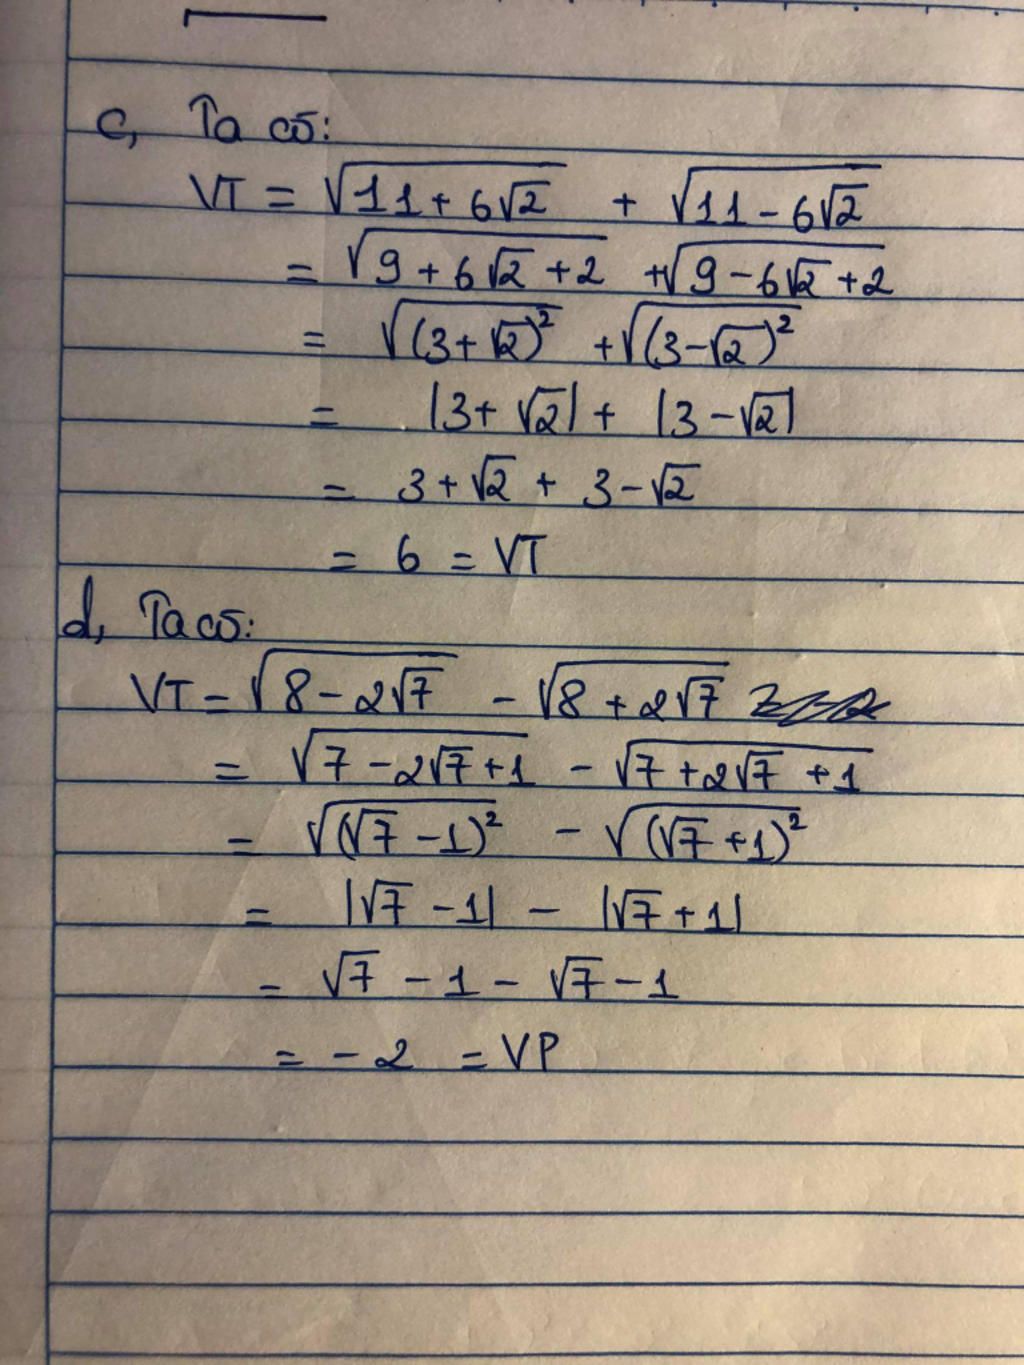 c, Ta có:
VT = √(11 + 6√2) + √(11 - 6√2)
= √(9 + 6√2 + 2) + √(9 - 6√2 + 2)
= √((3 + √2)²) + √((3 - √2)²)
= |3 + √2| + |3 - √2|
= 3 + √2 + 3 - √2
= 6 = VT
d, Ta có:
VT = √(8 - 2√7) - √(8 + 2√7)
= √(7 - 2√7 + 1) - √(7 + 2√7 + 1)
= √((√7 - 1)²) - √((√7 + 1)²)
= |√7 - 1| - |√7 + 1|
= √7 - 1 - √7 - 1
= -2 = VP